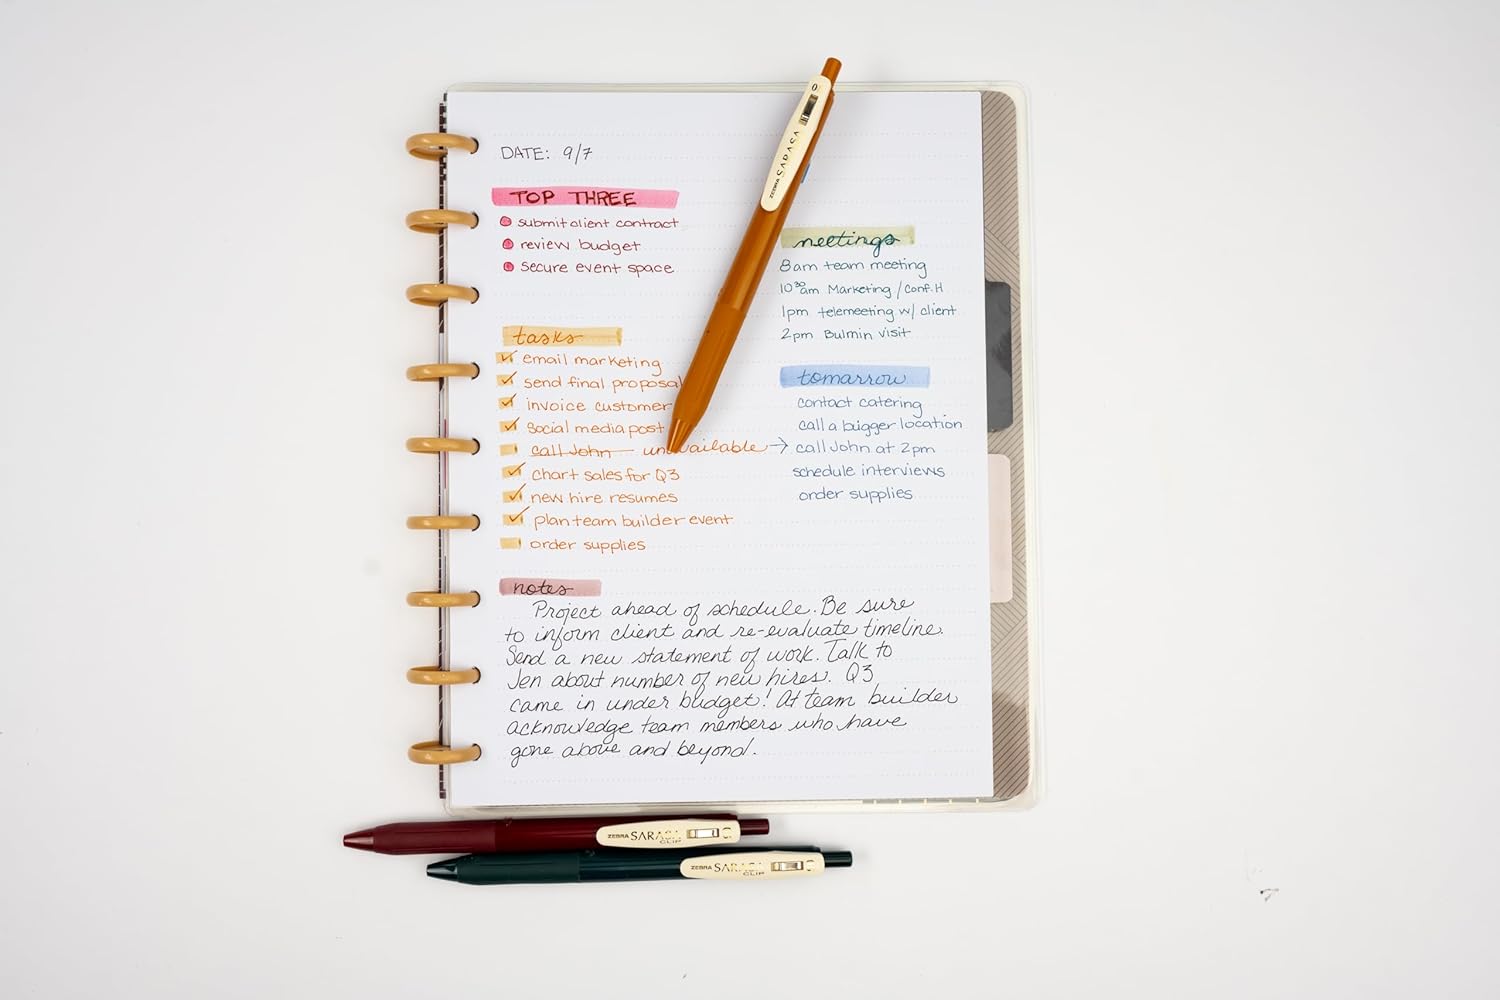 DATE: 9/7
TOP THREE
submit client contract
review budget
secure event space
tasks
email marketing
send final proposal
invoice customer
social media post
call John unavailable →
chart sales for Q3
new hire resumes
plan team builder event
order supplies
meetings
8am team meeting
10:30am Marketing / Conf. H
1pm telemeeting w/ client
2pm Bulmin visit
tomorrow
contact catering
call a bigger location
call John at 2pm
schedule interviews
order supplies
notes
Project ahead of schedule. Be sure
to inform client and re-evaluate timeline.
Send a new statement of work. Talk to
Jen about number of new hires. Q3
came in under budget! At team builder
acknowledge team members who have
gone above and beyond.
ZEBRA SARASA
ZEBRA SARASA CLIP
ZEBRA SARASA CLIP